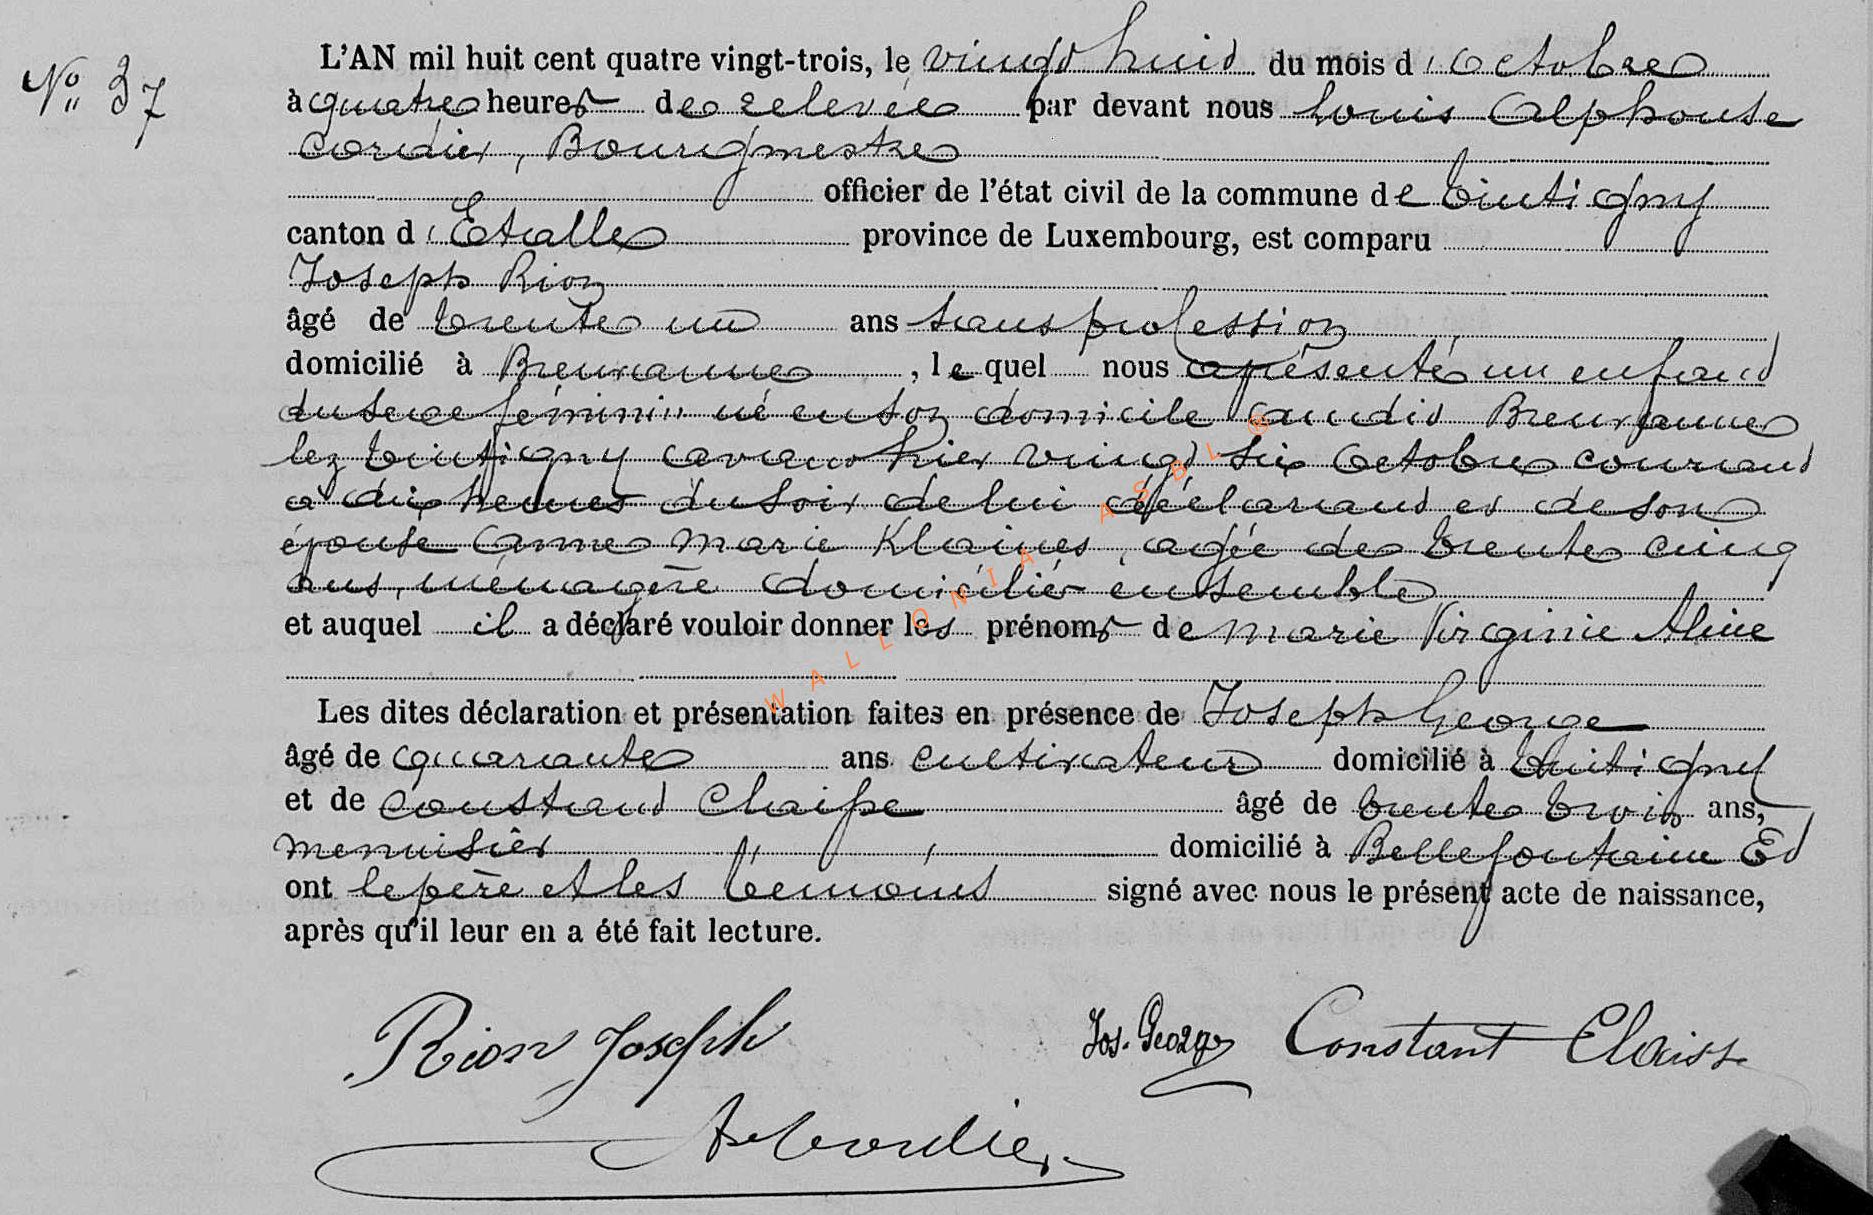 N° 37
L'AN mil huit cent quatre vingt-trois, le vingt huit du mois d'Octobre
à quatre heures de relevée par devant nous Louis Alphonse
Cordier, Bourgmestre
officier de l'état civil de la commune de Tintigny
canton d'Etalle province de Luxembourg, est comparu
Joseph Rion
âgé de trente un ans sans profession
domicilié à Breuvanne, lequel nous a présenté un enfant
du sexe féminin né en son domicile audit Breuvanne
lez Tintigny avant hier vingt six Octobre courant
à dix heures du soir de lui déclarant et de son
épouse Anne Marie Klaines, agée de trente cinq
ans, ménagère domiciliés ensemble
et auquel il a déclaré vouloir donner les prénoms de Marie Virginie Aline
Les dites déclaration et présentation faites en présence de Joseph George
âgé de quarante ans cultivateur domicilié à Tintigny
et de Constant Claisse âgé de trente trois ans,
menuisier domicilié à Bellefontaine Et
ont le père et les témoins signé avec nous le présent acte de naissance,
après qu'il leur en a été fait lecture.
Rion Joseph Jos. George Constant Claisse
A Cordier
WALLONIA ASBL ®